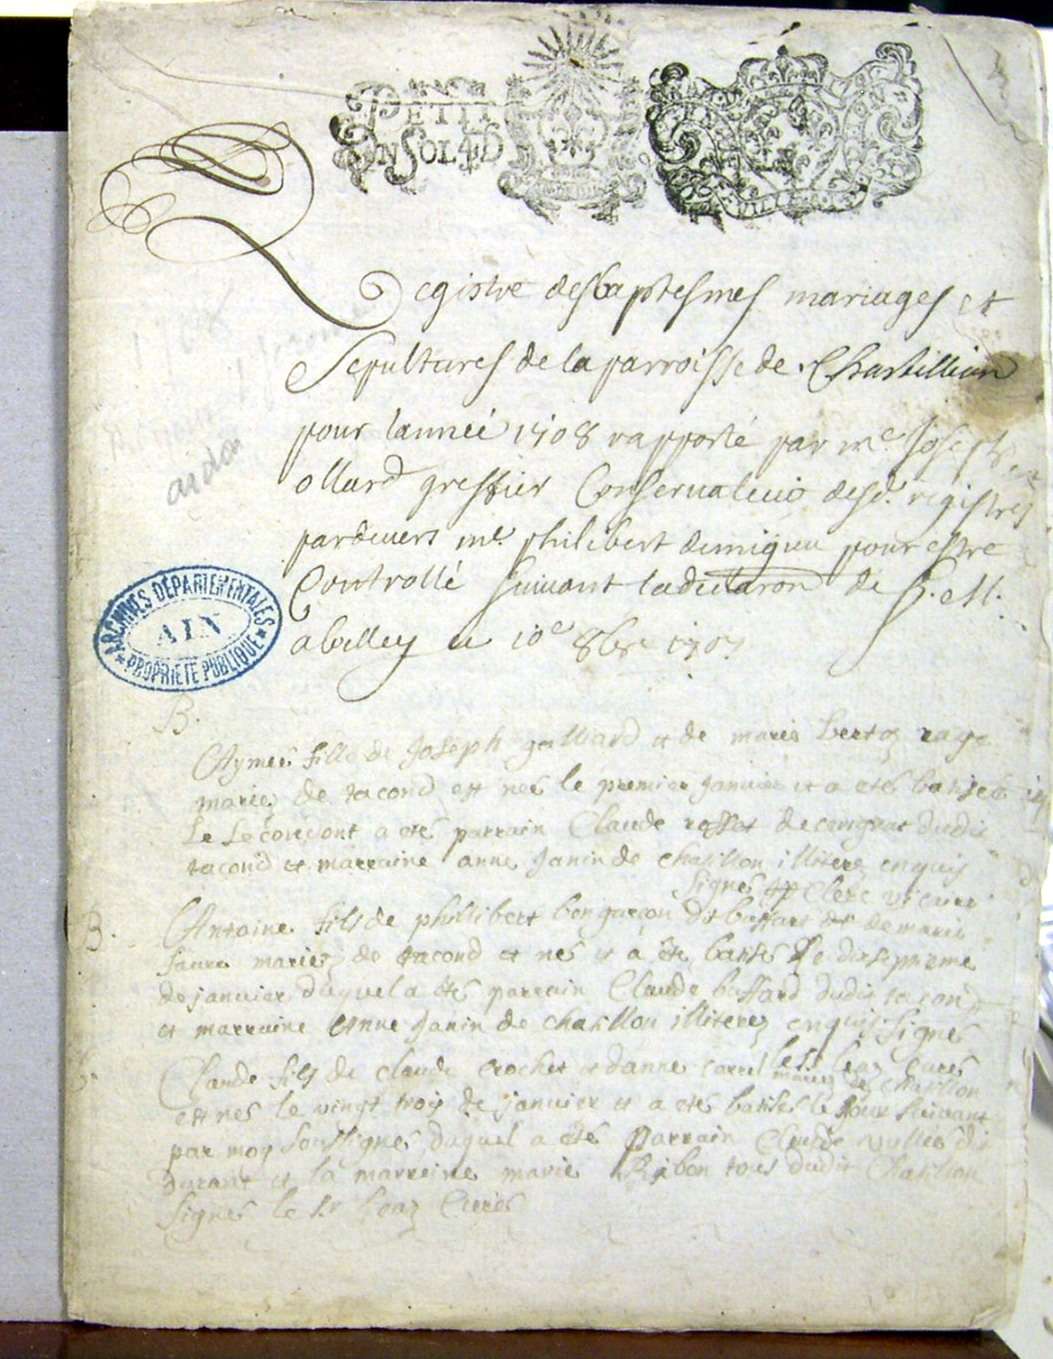 PETIT
UN SOL 4D
Registre des baptesmes mariages et
Sepultures de la parroisse de Chastillion
pour lannéé 1708 rapporté par me Joseph
ollard greffier Conservateur desd. registres
pardevers me. philibert demigieu pour estre
Controllé suivant ladeclaraon de S. M.
a belley ce 10e 8bre 1707
ARCHIVES DÉPARTEMENTALES
AIN
PROPRIÉTÉ PUBLIQUE
B.
fille de Joseph galliard et de marie
mariés de tacond est neé le premier janvier et a eté batiseé
Le Second dont a eté parrain Claude rosset de dudit
tacond et marraine anne Janin de chatillon illiterez enquis
signé Clerc vicaire
B.
Antoine fils de phillibert bongarcon dit buffart et de marie
favre mariez de tacond et né et a eté batisé le dixseptieme
de janvier duquel a eté parrain Claude buffard dudit tacond
et marraine anne Janin de chatillon illiterez enquis signé
Claude fils de claude crochet et danne carrel mariez de chatillon
est né le vingt trois de janvier et a eté batisé le jour suivant
par moy soussigné duquel a eté parrain Claude vullié dit
durant et la marreine marie Ribon tous dudit Chatillon
signé le Sr Curé